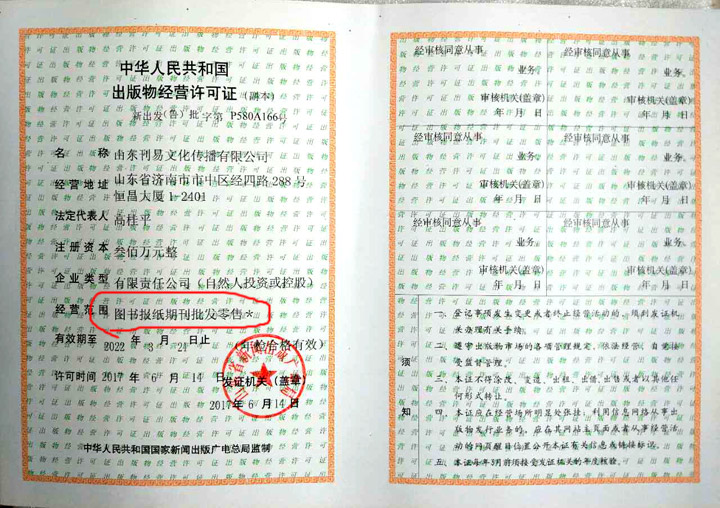 中华人民共和国
出版物经营许可证（副本）
新出发(鲁)批字第 P580A166号
名 称 山东刊易文化传播有限公司
经营地址 山东省济南市市中区经四路 288 号
恒昌大厦 1-2401
法定代表人 高桂平
注册资本 叁佰万元整
企业类型 有限责任公司（自然人投资或控股）
经营范围 图书报纸期刊批发零售*
有效期至 2022 年 3 月 21 日止 （年检合格有效）
许可时间 2017 年 6 月 14 日 发证机关(盖章)
2017年 6 月 14 日
中华人民共和国国家新闻出版广电总局监制
经审核同意从事 经审核同意从事
业务。 业务。
审核机关(盖章) 审核机关(盖章)
年 月 日 年 月 日
经审核同意从事 经审核同意从事
业务。 业务。
审核机关(盖章) 审核机关(盖章)
年 月 日 年 月 日
经审核同意从事 经审核同意从事
业务。 业务。
审核机关(盖章) 审核机关(盖章)
年 月 日 年 月 日
须知
一、登记事项发生变更或者终止经营活动的，须到发证机
关办理有关手续。
二、遵守出版物市场的各项管理规定，依法经营，自觉接
受监督管理。
三、本证不得涂改、变造、出租、出借、出售或者以其他任
何形式转让。
四、本证应在经营场所明显处张挂；利用信息网络从事出
版物发行业务的，应在其网站主页面或者从事经营活
动的网页醒目位置公开本证有关信息或链接标识。
五、本证每年3月前须接受发证机关的年度核验。